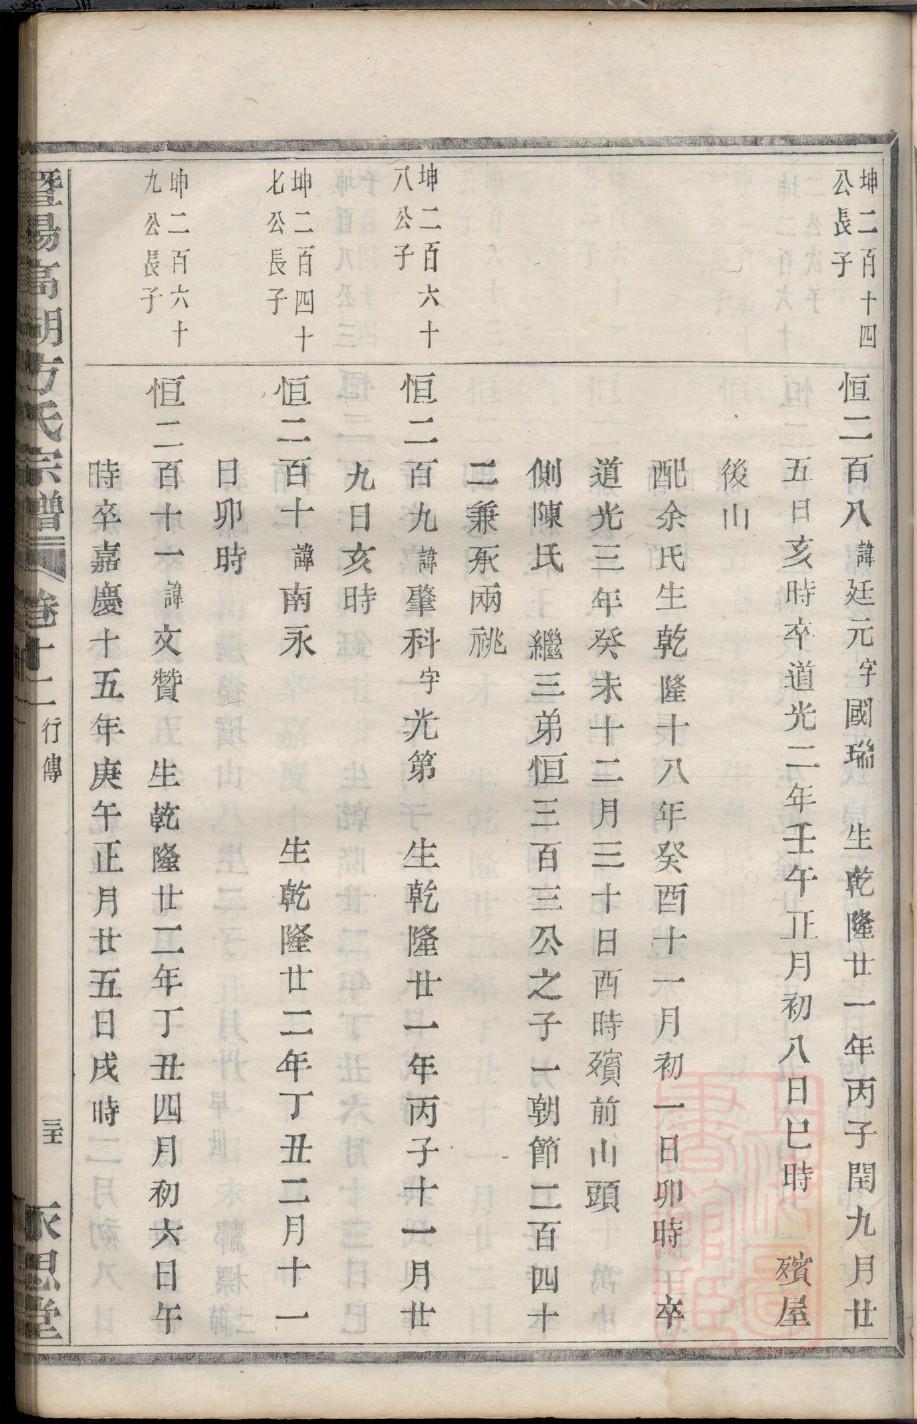 坤二百十四
公長子
恒二百八諱廷元字國瑞 生乾隆廿一年丙子閏九月廿
五日亥時卒道光二年壬午正月初八日巳時 殯屋
後山
配余氏生乾隆十八年癸酉十一月初一日卯時 卒
道光三年癸未十二月三十日酉時殯前山頭
側陳氏 繼三弟恒三百三公之子一朝節二百四十
二兼承兩祧
坤二百六十
八公子
恒二百九諱肇科字光第 生乾隆廿一年丙子十一月廿
九日亥時
坤二百四十
七公長子
恒二百十諱南永 生乾隆廿二年丁丑二月十一
日卯時
坤二百六十
九公長子
恒二百十一諱文贊 生乾隆廿二年丁丑四月初六日午
時卒嘉慶十五年庚午正月廿五日戌時
暨陽高湖方氏宗譜 卷十二 行傳 永思堂